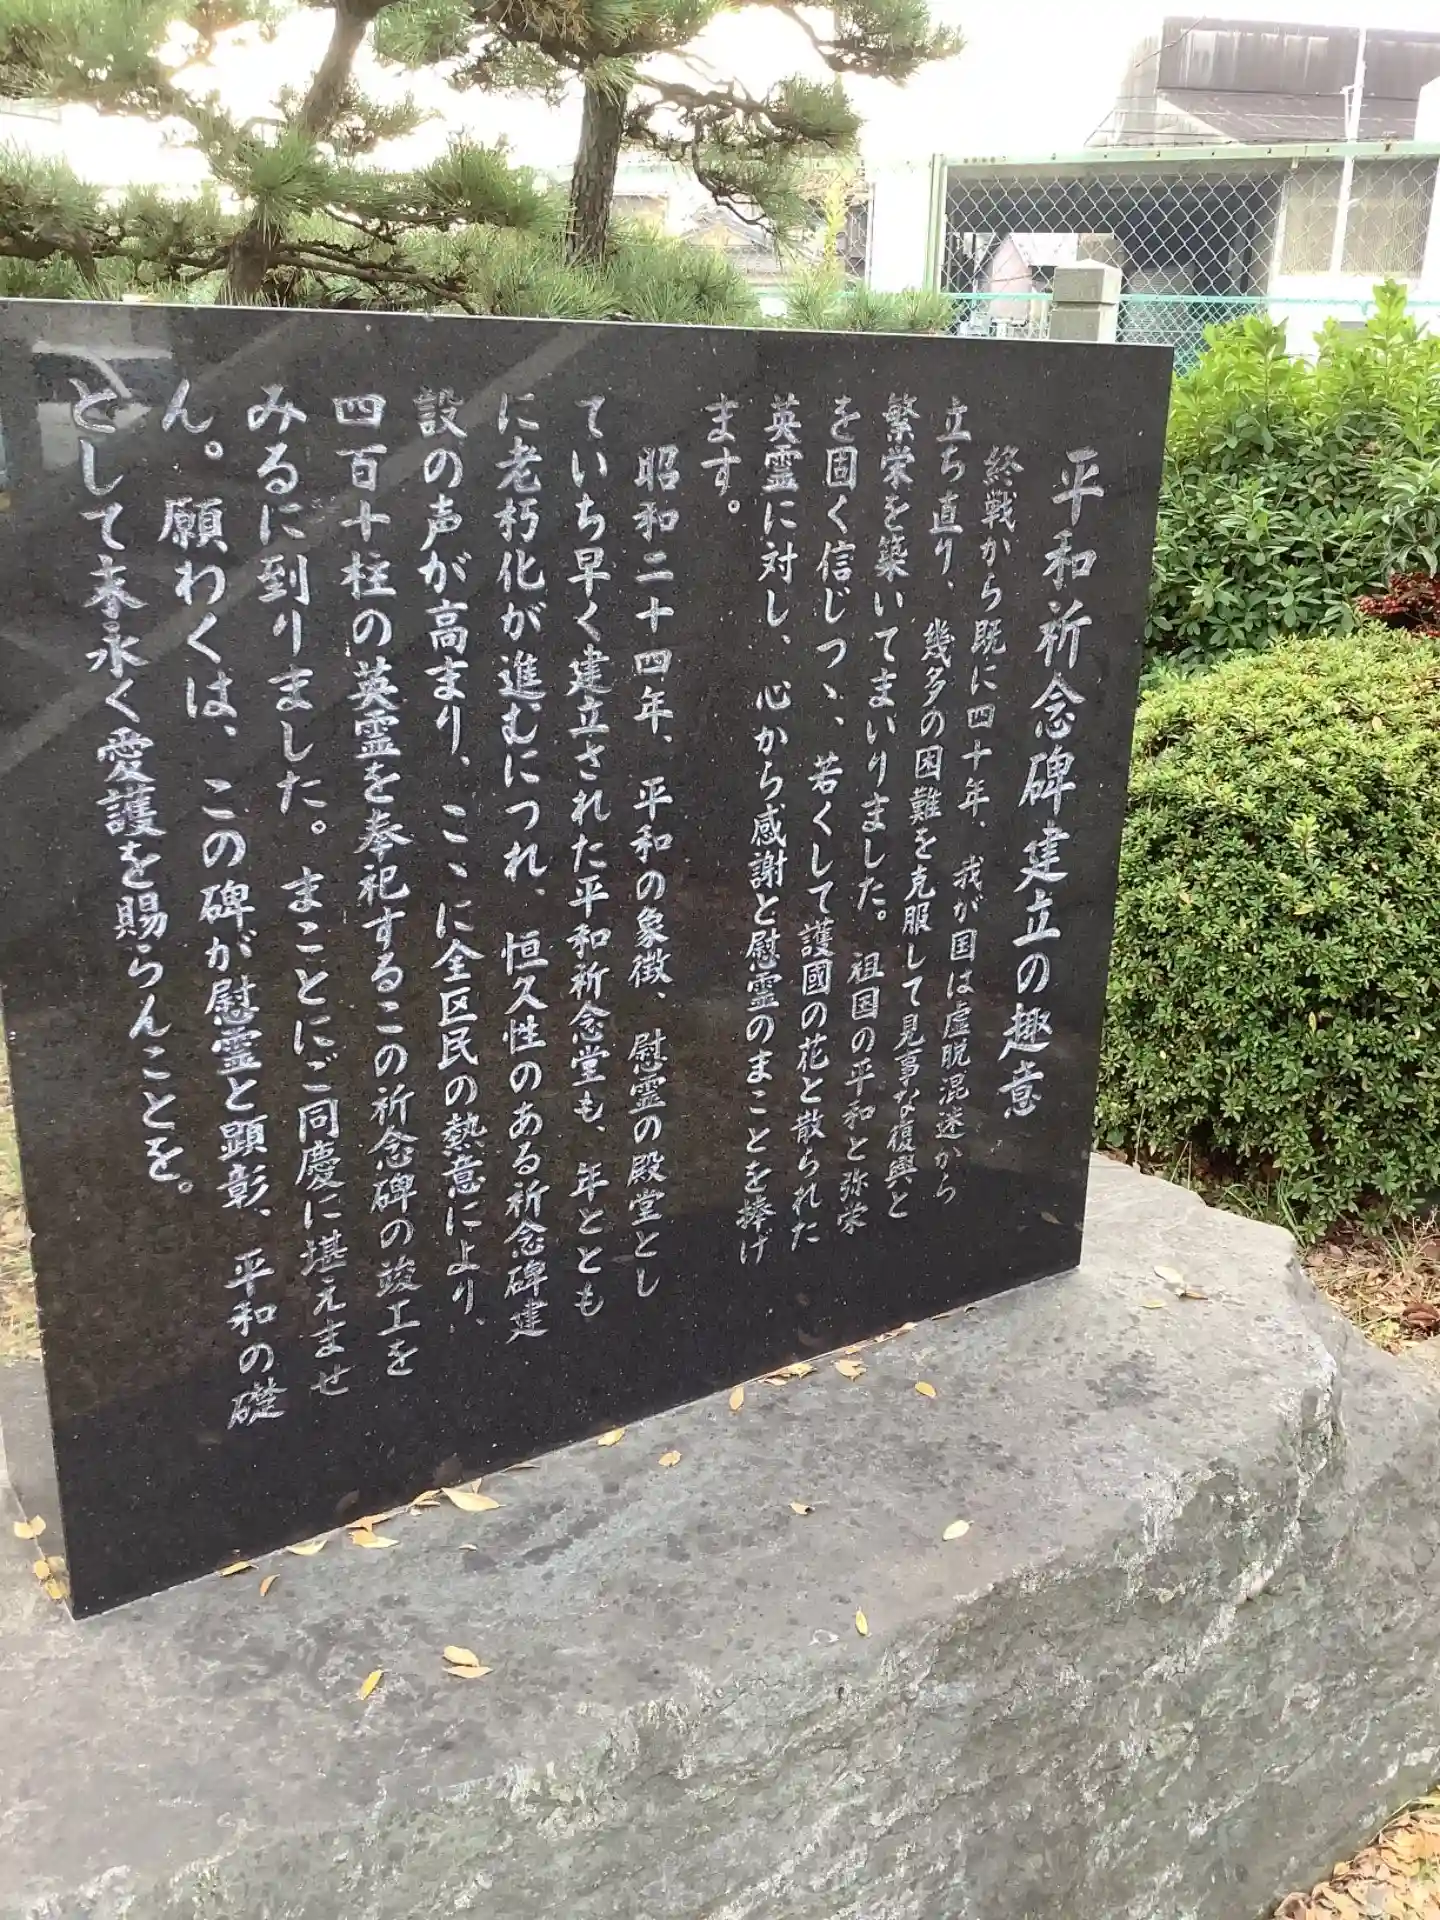 平和祈念碑建立の趣意
終戦から既に四十年、我が国は虚脱混迷から
立ち直り、幾多の困難を克服して見事な復興と
繁栄を築いてまいりました。祖国の平和と弥栄
を固く信じつゝ、若くして護國の花と散られた
英霊に対し、心から感謝と慰霊のまことを捧げ
ます。
昭和二十四年、平和の象徴、慰霊の殿堂とし
ていち早く建立された平和祈念堂も、年ととも
に老朽化が進むにつれ、恒久性のある祈念碑建
設の声が高まり、こゝに全区民の熱意により、
四百十柱の英霊を奉祀するこの祈念碑の竣工を
みるに到りました。まことにご同慶に堪えませ
ん。願わくは、この碑が慰霊と顕彰、平和の礎
として末永く愛護を賜らんことを。